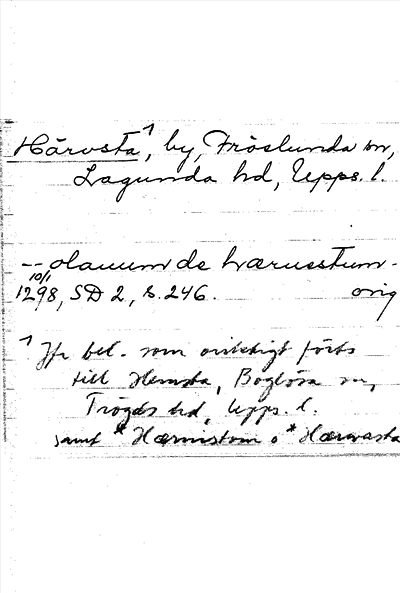 Härvsta¹, by, Fröslunda sn,
Lagunda hd, Upps. l.
-- olauum de hærusstum -
10/1
1298, SD 2, s. 246. orig
¹ Jfr bel. som oriktigt förts
till Hemsta, Boglösa sn,
Trögds hd, Upps. l.
samt *Hærnistom o *Hærvasta